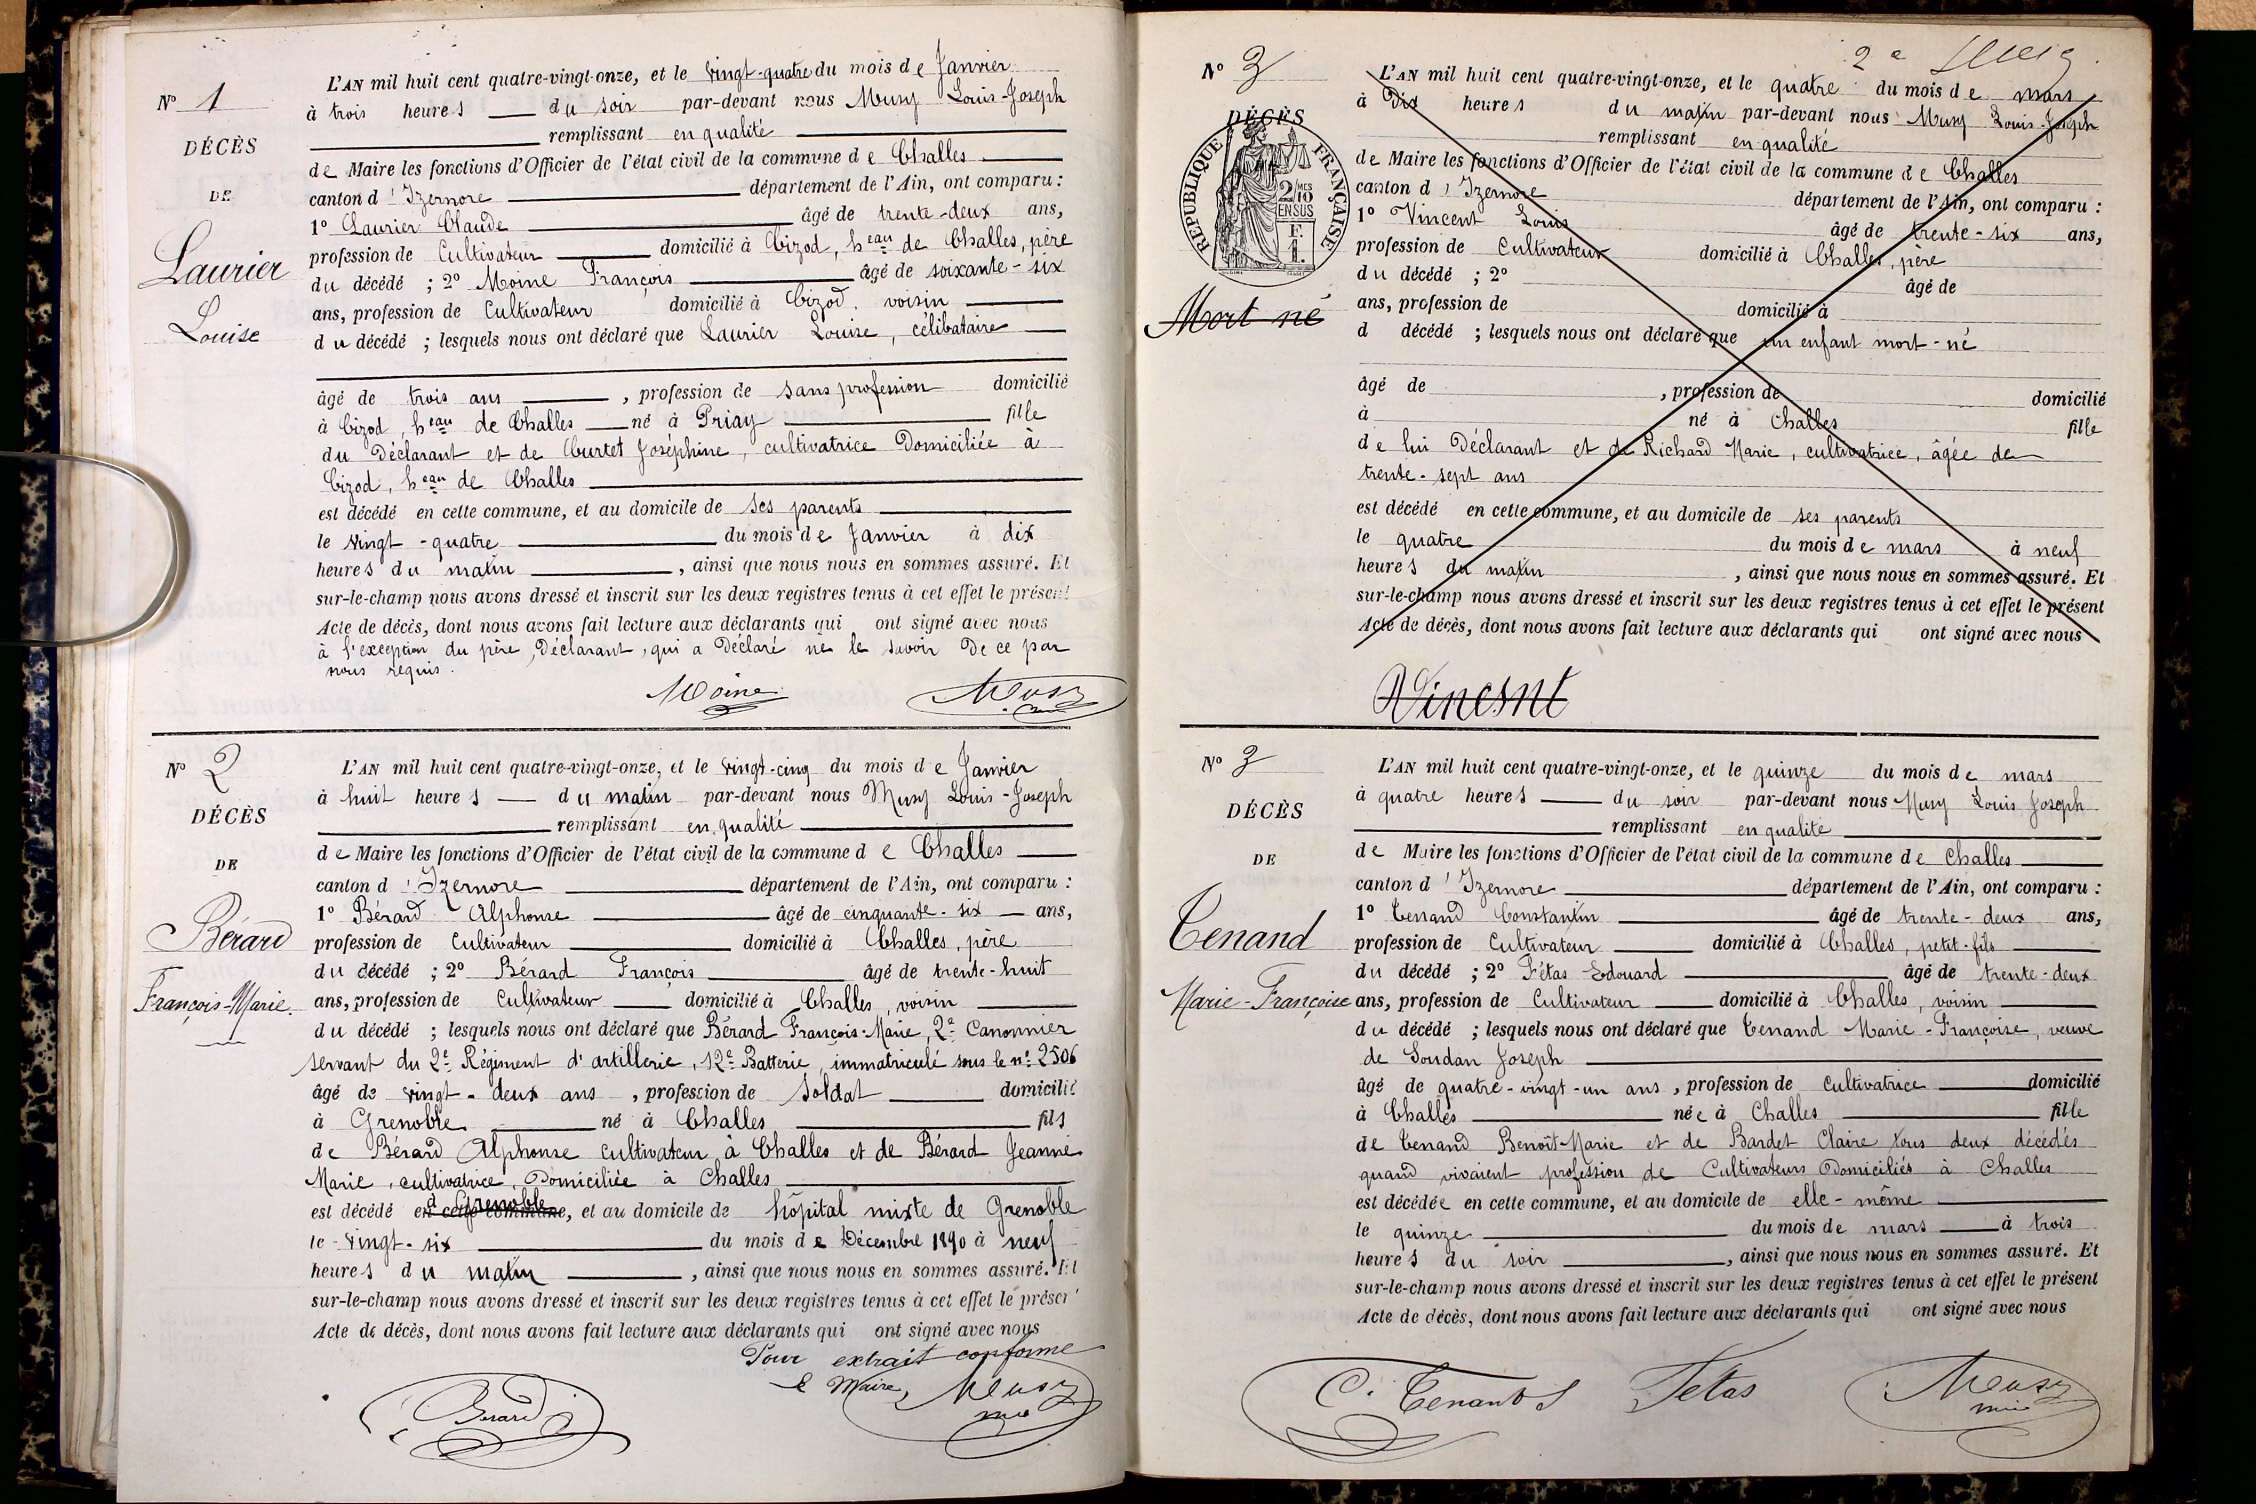 N° 1
DÉCÈS
DE
Laurier
Louise
L'AN mil huit cent quatre-vingt-onze, et le vingt-quatre du mois de Janvier
à trois heures du soir par-devant nous Musy Louis-Joseph
remplissant en qualité
de Maire les fonctions d'Officier de l'état civil de la commune de Challes
canton d'Izernore département de l'Ain, ont comparu :
1° Laurier Claude âgé de trente-deux ans,
profession de Cultivateur domicilié à Cizod, heau de Challes, père
du décédé ; 2° Moine François âgé de soixante-six
ans, profession de Cultivateur domicilié à Cizod, voisin
du décédé ; lesquels nous ont déclaré que Laurier Louise, célibataire
âgé de trois ans, profession de sans profession domicilié
à Cizod, heau de Challes né à Priay fille
du Déclarant et de Curtet Joséphine, cultivatrice Domiciliée à
Cizod, heau de Challes
est décédé en cette commune, et au domicile de ses parents
le vingt-quatre du mois de Janvier à dix
heures du matin, ainsi que nous nous en sommes assuré. Et
sur-le-champ nous avons dressé et inscrit sur les deux registres tenus à cet effet le présent
Acte de décès, dont nous avons fait lecture aux déclarants qui ont signé avec nous
à l'exception du père, Déclarant, qui a Déclaré ne le savoir De ce par
nous requis.
Moine Musy
N° 2
DÉCÈS
DE
Bérard
François-Marie.
L'AN mil huit cent quatre-vingt-onze, et le vingt-cinq du mois de Janvier
à huit heures du matin par-devant nous Musy Louis-Joseph
remplissant en qualité
de Maire les fonctions d'Officier de l'état civil de la commune de Challes
canton d'Izernore département de l'Ain, ont comparu :
1° Bérard Alphonse âgé de cinquante-six ans,
profession de Cultivateur domicilié à Challes, père
du décédé ; 2° Bérard François âgé de trente-huit
ans, profession de Cultivateur domicilié à Challes, voisin
du décédé ; lesquels nous ont déclaré que Bérard François-Marie, 2e Canonnier
servant du 2e Régiment d'artillerie, 12e Batterie, immatriculé sous le n° 2506
âgé de vingt-deux ans, profession de Soldat domicilié
à Grenoble né à Challes fils
de Bérard Alphonse cultivateur à Challes et de Bérard Jeanne
Marie, cultivatrice, Domiciliée à Challes
à Grenoble
est décédé en cette commune, et au domicile de hôpital mixte de Grenoble
le vingt-six du mois de Décembre 1890 à neuf
heures du matin, ainsi que nous nous en sommes assuré. Et
sur-le-champ nous avons dressé et inscrit sur les deux registres tenus à cet effet le présent
Acte de décès, dont nous avons fait lecture aux déclarants qui ont signé avec nous
Pour extrait conforme
Le Maire,
Bérard Musy
N° 3
DÉCÈS
RÉPUBLIQUE FRANÇAISE
2 MES
10
EN SUS
Mort né
L'AN mil huit cent quatre-vingt-onze, et le quatre du mois de mars
à Dix heures du matin par-devant nous Musy Louis-Joseph
remplissant en qualité
de Maire les fonctions d'Officier de l'état civil de la commune de Challes
canton d'Izernore département de l'Ain, ont comparu :
1° Vincent Louis âgé de trente-six ans,
profession de Cultivateur domicilié à Challes, père
du décédé ; 2° âgé de
ans, profession de domicilié à
d décédé ; lesquels nous ont déclaré que un enfant mort-né
âgé de , profession de domicilié
à né à Challes fille
de lui Déclarant et de Richard Marie, cultivatrice, âgée de
trente-sept ans
est décédé en cette commune, et au domicile de ses parents
le quatre du mois de mars à neuf
heures du matin, ainsi que nous nous en sommes assuré. Et
sur-le-champ nous avons dressé et inscrit sur les deux registres tenus à cet effet le présent
Acte de décès, dont nous avons fait lecture aux déclarants qui ont signé avec nous
Vincent
N° 3
DÉCÈS
DE
Tenand
Marie-Françoise
L'AN mil huit cent quatre-vingt-onze, et le quinze du mois de mars
à quatre heures du soir par-devant nous Musy Louis Joseph
remplissant en qualité
de Maire les fonctions d'Officier de l'état civil de la commune de Challes
canton d'Izernore département de l'Ain, ont comparu :
1° Tenand Constantin âgé de trente-deux ans,
profession de Cultivateur domicilié à Challes, petit-fils
du décédé ; 2° Fétas Edouard âgé de trente-deux
ans, profession de Cultivateur domicilié à Challes, voisin
du décédé ; lesquels nous ont déclaré que Tenand Marie-Françoise, veuve
de Soudan Joseph
âgé de quatre-vingt-un ans, profession de cultivatrice domicilié
à Challes née à Challes fille
de Tenand Benoît-Marie et de Bardet Claire tous deux décédés
quand vivaient profession de Cultivateurs Domiciliés à Challes
est décédée en cette commune, et au domicile de elle-même
le quinze du mois de mars à trois
heures du soir, ainsi que nous nous en sommes assuré. Et
sur-le-champ nous avons dressé et inscrit sur les deux registres tenus à cet effet le présent
Acte de décès, dont nous avons fait lecture aux déclarants qui ont signé avec nous
C. Tenand Fetas Musy